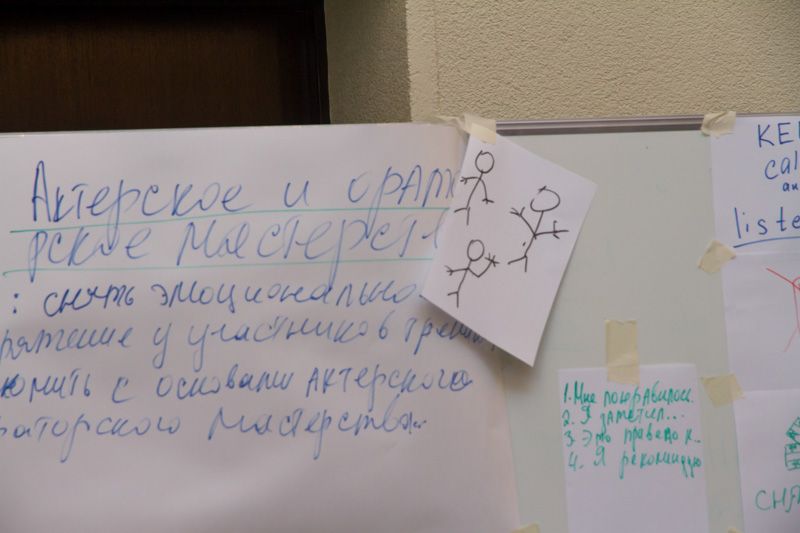 Актерское и орат
рское мастерст
: снять эмоционально
ряжение у участников трени
юмить с основами актерского
раторского мастерства..
1. Мне понравилось.
2. Я заметил...
3. Это привело к..
4. Я рекомендую
KE
cal
an
liste
СНЯ